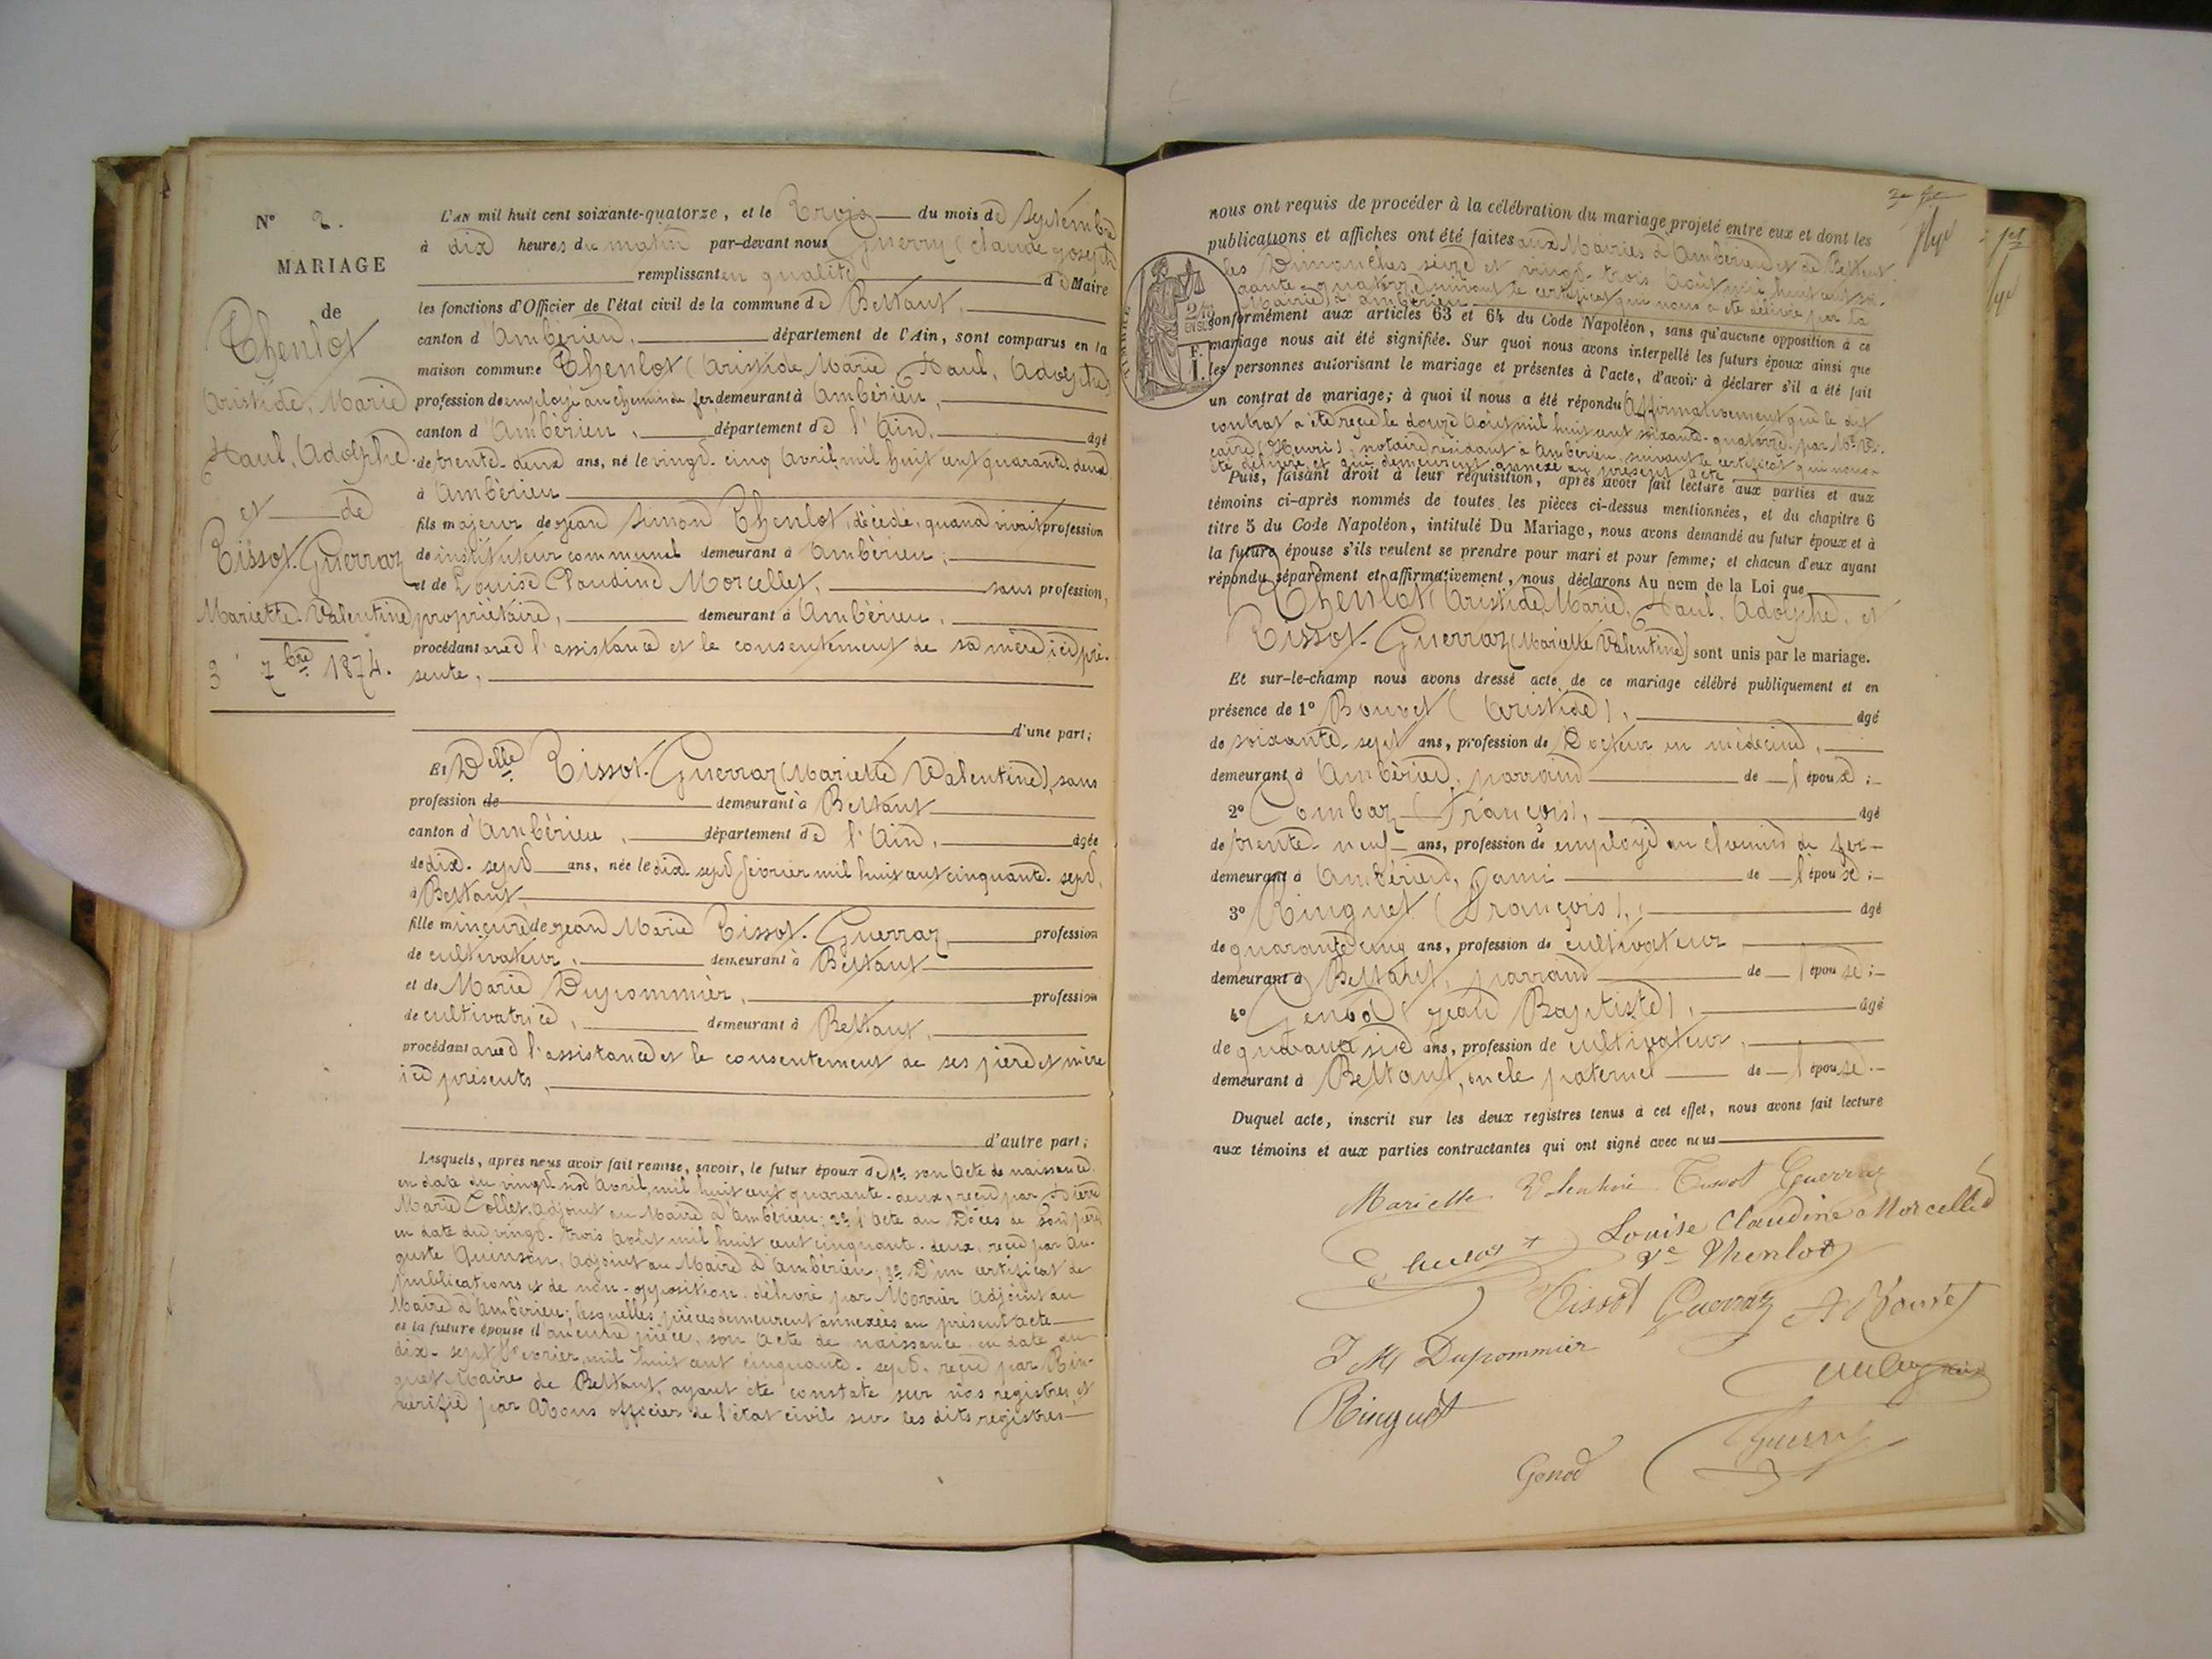 N° 2.
MARIAGE
de
Thenlot
Aristide, Marie
Paul, Adolphe.
et de
Tissot-Guerraz
Mariette Valentine
3 7bre 1874.
L'AN mil huit cent soixante-quatorze, et le Trois du mois de Septembre
à dix heures du matin par-devant nous Guerry (Claude Joseph
remplissant en qualité de Maire
les fonctions d'Officier de l'état civil de la commune de Bettant,
canton d'Ambérieu, département de l'Ain, sont comparus en la
maison commune Thenlot (Aristide, Marie, Paul, Adolphe)
profession de employé au chemin de fer demeurant à Ambérieu,
canton d'Ambérieu, département de l'Ain, âgé
de trente-deux ans, né le vingt-cinq Avril mil huit cent quarante-deux
à Ambérieu
fils majeur de Jean Simon Thenlot, décédé, quand vivait profession
de instituteur communal demeurant à Ambérieu;
et de Louise Claudine Morcellet, sans profession,
propriétaire, demeurant à Ambérieu,
procédant avec l'assistance et le consentement de sa mère ici pré-
sente,
d'une part;
Et Delle Tissot-Guerraz (Mariette Valentine), sans
profession de demeurant à Bettant
canton d'Ambérieu, département de l'Ain, âgée
de dix-sept ans, née le dix sept février mil huit cent cinquante-sept,
à Bettant,
fille mineure de Jean Marie Tissot-Guerraz, profession
de cultivateur, demeurant à Bettant
et de Marie Dupommier, profession
de cultivatrice, demeurant à Bettant,
procédant avec l'assistance et le consentement de ses père et mère
ici présents,
d'autre part;
Lesquels, après nous avoir fait remise, savoir, le futur époux de 1° son Acte de naissance
en date du vingt six Avril, mil huit cent quarante-deux, reçu par Pierre
Marie Collet, adjoint au Maire d'Ambérieu; 2° l'Acte du Décès de son père
en date du vingt-trois Août mil huit cent cinquante-deux, reçu par Au-
guste Quinson, Adjoint au Maire d'Ambérieu; 3° D'un certificat de
publications et de non-opposition délivré par Morrier Adjoint au
Maire d'Ambérieu; lesquelles pièces demeurent annexées au présent acte
et la future épouse d'aucune pièce, son Acte de naissance en date du
dix-sept février, mil huit cent cinquante-sept, reçu par Rin-
guet Maire de Bettant, ayant été constaté sur nos registres, et
vérifié par Nous officier de l'état civil sur les dits registres
nous ont requis de procéder à la célébration du mariage projeté entre eux et dont les
publications et affiches ont été faites aux Mairies d'Ambérieu et de Bettant
les Dimanches seize et vingt-trois Août mil huit cent soi-
xante-quatorze, suivant le certificat qui nous a été délivré par la
Mairie d'Ambérieu
conformément aux articles 63 et 64 du Code Napoléon, sans qu'aucune opposition à ce
mariage nous ait été signifiée. Sur quoi nous avons interpellé les futurs époux ainsi que
les personnes autorisant le mariage et présentes à l'acte, d'avoir à déclarer s'il a été fait
un contrat de mariage; à quoi il nous a été répondu Affirmativement que le dit
contrat a été reçu le douze Août mil huit cent soixante-quatorze, par Me
(Henri), notaire résidant à Ambérieu, suivant le certificat qui nous a
été délivré et qui demeurent annexé au présent acte
Puis, faisant droit à leur réquisition, après avoir fait lecture aux parties et aux
témoins ci-après nommés de toutes les pièces ci-dessus mentionnées, et du chapitre 6
titre 5 du Code Napoléon, intitulé Du Mariage, nous avons demandé au futur époux et à
la future épouse s'ils veulent se prendre pour mari et pour femme; et chacun d'eux ayant
répondu séparément et affirmativement, nous déclarons Au nom de la Loi que
Thenlot (Aristide, Marie, Paul, Adolphe, et
Tissot-Guerraz (Mariette Valentine) sont unis par le mariage.
Et sur-le-champ nous avons dressé acte de ce mariage célébré publiquement et en
présence de 1° Bouvet (Aristide), âgé
de soixante-sept ans, profession de Docteur en médecine,
demeurant à Ambérieu, parrain de l'époux;
2° Combaz (François), âgé
de trente-neuf ans, profession de employé au chemin de fer
demeurant à Ambérieu, ami de l'épouse;
3° Ringuet (François), âgé
de quarante cinq ans, profession de cultivateur
demeurant à Bettant, parrain de l'épouse;
4° Genod (Jean Baptiste), âgé
de quarante six ans, profession de cultivateur,
demeurant à Bettant, oncle paternel de l'épouse.
Duquel acte, inscrit sur les deux registres tenus à cet effet, nous avons fait lecture
aux témoins et aux parties contractantes qui ont signé avec nous
Mariette Valentine Tissot Guerraz
Louise Claudine Morcellet
Ve Thenlot
Tissot Guerraz A Bouvet
J M Dupommier
Ringuet
Guerry
Genod